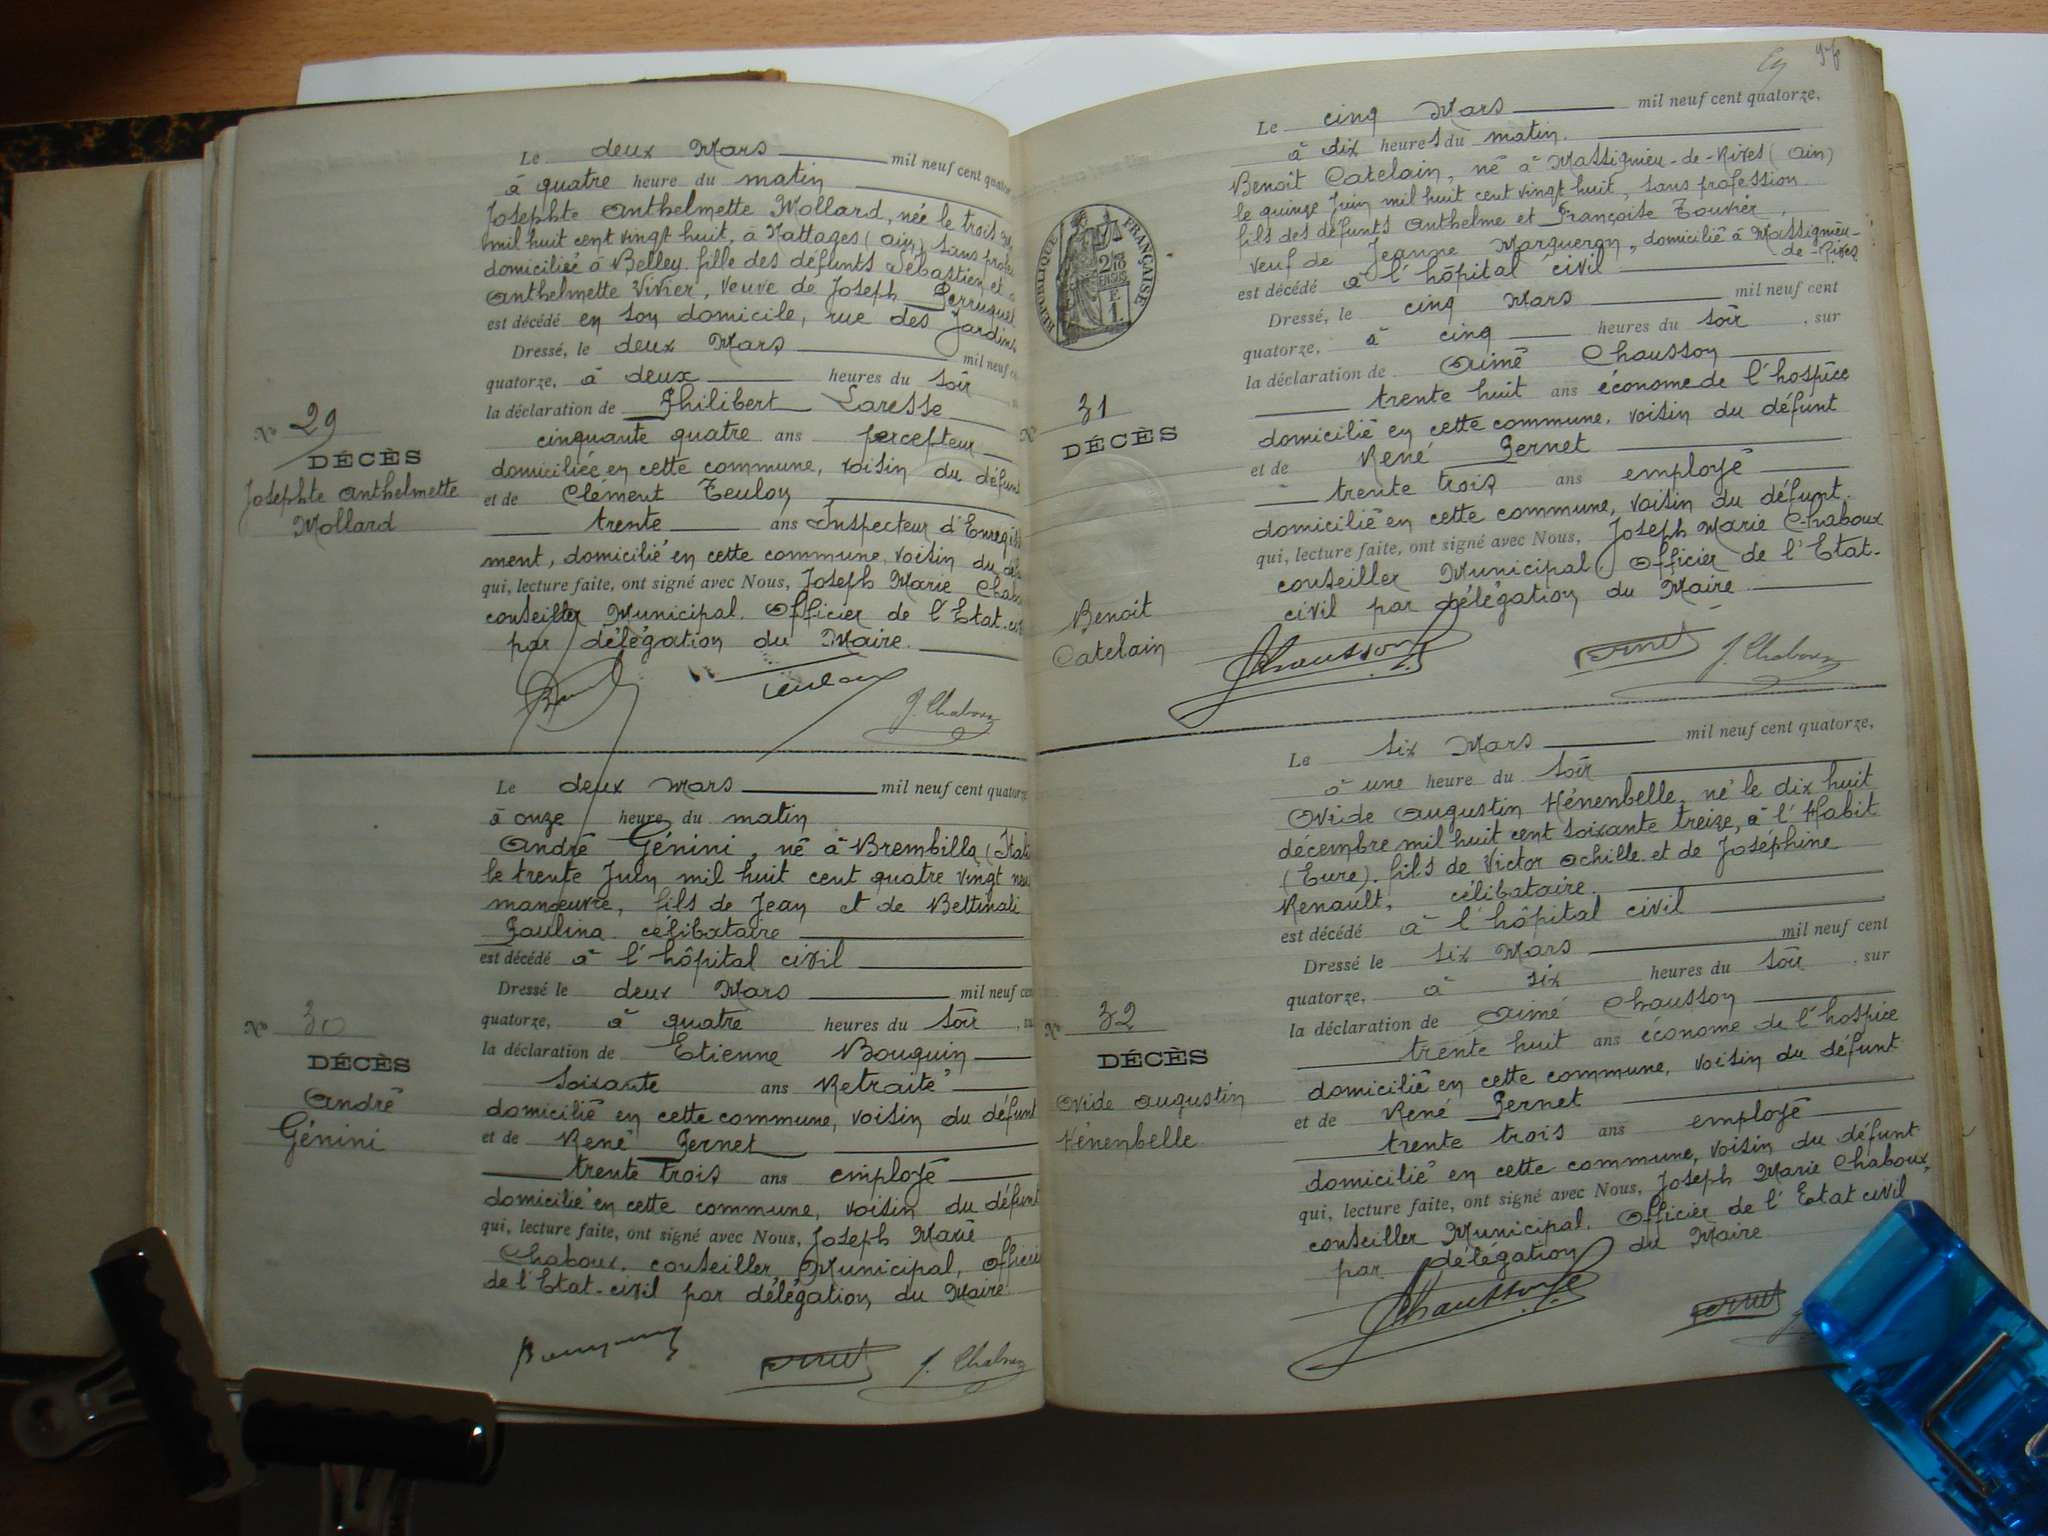 Le deux Mars mil neuf cent
à quatre heure du matin
Josephte Anthelmette Mollard, née le trois
mil huit cent vingt huit, à Nattages (Ain) sans
domiciliée à Belley fille des défunts Sébastien et
Anthelmette Vivier, veuve de Joseph
est décédé en son domicile, rue des Jardins
Dressé, le deux Mars mil neuf
quatorze, à deux heures du soir
la déclaration de Philibert Laresse
cinquante quatre ans percepteur
N° 29
DÉCÈS
Josephte Anthelmette
Mollard
domiciliée en cette commune, voisin du
et de Clément Teulon
trente ans Inspecteur
ment, domicilié en cette commune, voisin du
qui, lecture faite, ont signé avec Nous, Joseph Marie
conseiller Municipal. Officier de l'Etat
par délégation du Maire.
Teulon J. Chaboux
Le deux Mars mil neuf cent quatorze
à onze heure du matin
André Génini, né à Brembilla
le trente Juin mil huit cent quatre vingt
manœuvre, fils de Jean et de Bettinali
Paulina célibataire
est décédé à l'hôpital civil
Dressé le deux Mars mil neuf
quatorze, à quatre heures du soir
N° 30
DÉCÈS
André
Génini
la déclaration de Etienne Bouquin
soixante ans Retraité
domicilié en cette commune, voisin du défunt
et de René Pernet
trente trois ans employé
domicilié en cette commune, voisin du défunt
qui, lecture faite, ont signé avec Nous, Joseph Marie
Chaboux, conseiller Municipal, Officier
de l'Etat-civil par délégation du Maire
J. Chaboux
Le cinq Mars mil neuf cent quatorze,
à dix heures du matin.
Benoit Catelain, né à Massignieu-de-Rives (Ain)
le quinze Juin mil huit cent vingt huit, sans profession
fils des défunts Anthelme et Françoise Touvier,
veuf de Jeanne Marqueron, domicilié à Massignieu-
de-Rives
est décédé à l'hôpital civil
RÉPUBLIQUE FRANÇAISE
Dressé, le cinq Mars mil neuf cent
quatorze, à cinq heures du soir, sur
la déclaration de Aimé Chausson
trente huit ans économe de l'hospice
domicilié en cette commune, voisin du défunt
N° 31
DÉCÈS
Benoit
Catelain
et de René Pernet
trente trois ans employé
domicilié en cette commune, voisin du défunt.
qui, lecture faite, ont signé avec Nous, Joseph Marie Chaboux
conseiller Municipal. Officier de l'Etat-
civil par délégation du Maire
Chausson J. Chaboux
Le six Mars mil neuf cent quatorze,
à une heure du soir
Ovide Augustin Hénenbelle, né le dix huit
décembre mil huit cent soixante treize, à l'Habit
(Eure). fils de Victor Achille et de Joséphine
Renault, célibataire.
est décédé à l'hôpital civil
Dressé le six Mars mil neuf cent
quatorze, à six heures du soir, sur
N° 32
DÉCÈS
Ovide Augustin
Hénenbelle
la déclaration de Aimé Chausson
trente huit ans économe de l'hospice
domicilié en cette commune, voisin du défunt
et de René Pernet
trente trois ans employé
domicilié en cette commune, voisin du défunt
qui, lecture faite, ont signé avec Nous, Joseph Marie Chaboux,
conseiller Municipal. Officier de l'Etat civil
par délégation du Maire
Chausson